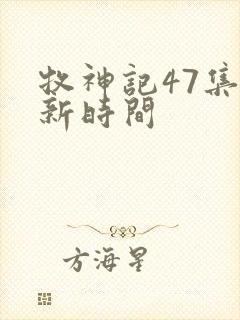 牧神記47集
新時間
方海星